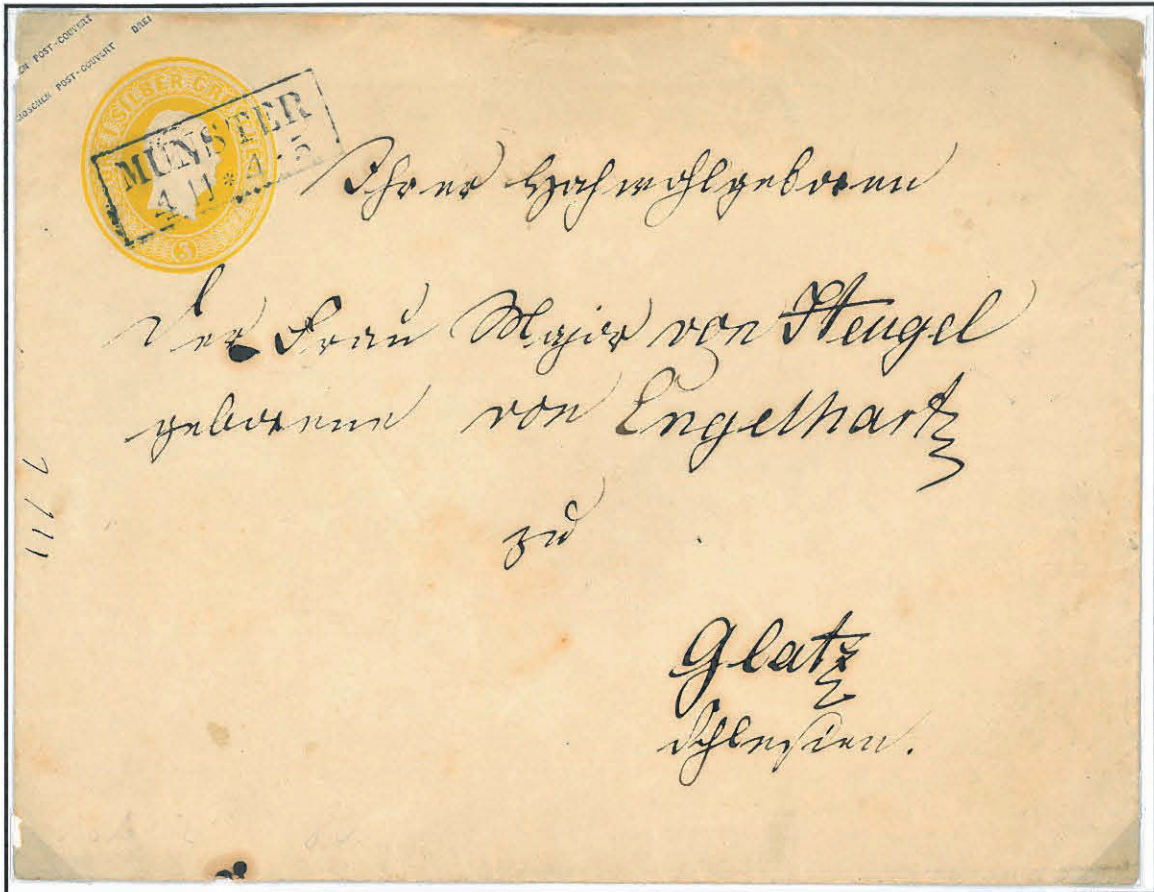 EN POST-COUVERT
GROSCHEN POST-COUVERT DREI
SILBER GR
3
MÜNSTER
4 11 * 4-5
Ihrer Hochwohlgeboren
der Frau Major von Stengel
geborene von Engelhart
zu
Glatz
Schlesien.